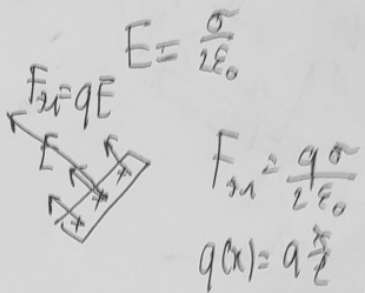 E = σ/2ε₀
F₂₁ = qE
E
+ + +
F₂₁ = qσ/2ε₀
q(x) = q x/ℓ